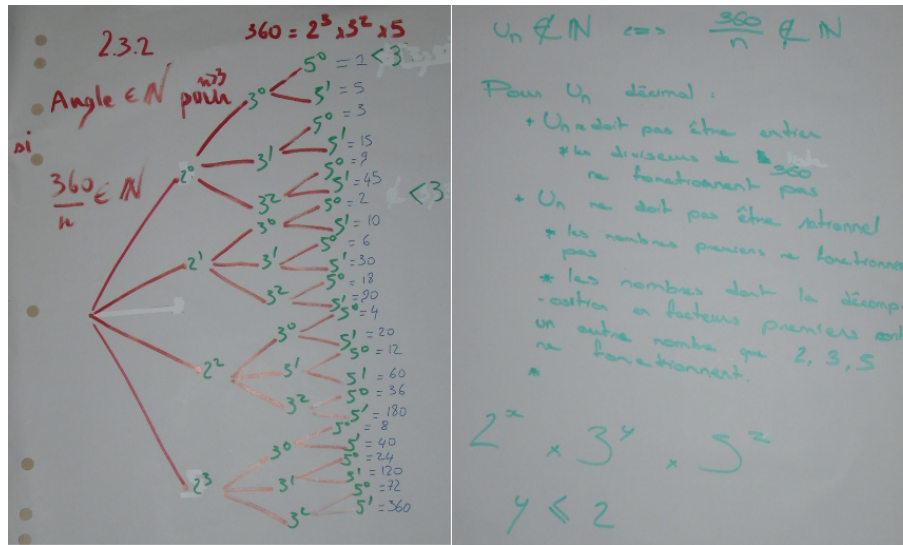 2.3.2
360 = 2³ × 3² × 5
Angle ∈ ℕ pour n≥3
si
360/n ∈ ℕ
2⁰
3⁰
5⁰ = 1 <3
5¹ = 5
3¹
5⁰ = 3
5¹ = 15
3²
5⁰ = 9
5¹ = 45
2¹
3⁰
5⁰ = 2 <3
5¹ = 10
3¹
5⁰ = 6
5¹ = 30
3²
5⁰ = 18
5¹ = 90
2²
3⁰
5⁰ = 4
5¹ = 20
3¹
5⁰ = 12
5¹ = 60
3²
5⁰ = 36
5¹ = 180
2³
3⁰
5⁰ = 8
5¹ = 40
3¹
5⁰ = 24
5¹ = 120
3²
5⁰ = 72
5¹ = 360
Un ∉ ℕ <=> 360/n ∉ ℕ
Pour Un décimal :
+ Un doit pas être entier
* les diviseurs de 360
ne fonctionnent pas
+ Un ne doit pas être rationnel
* les nombres premiers ne fonctionne
pas
* les nombres dont la décomp
-osition en facteurs premiers cont
un autre nombre que 2, 3, 5
ne fonctionnent.
*
2ˣ × 3ʸ × 5ᶻ
y ⩽ 2